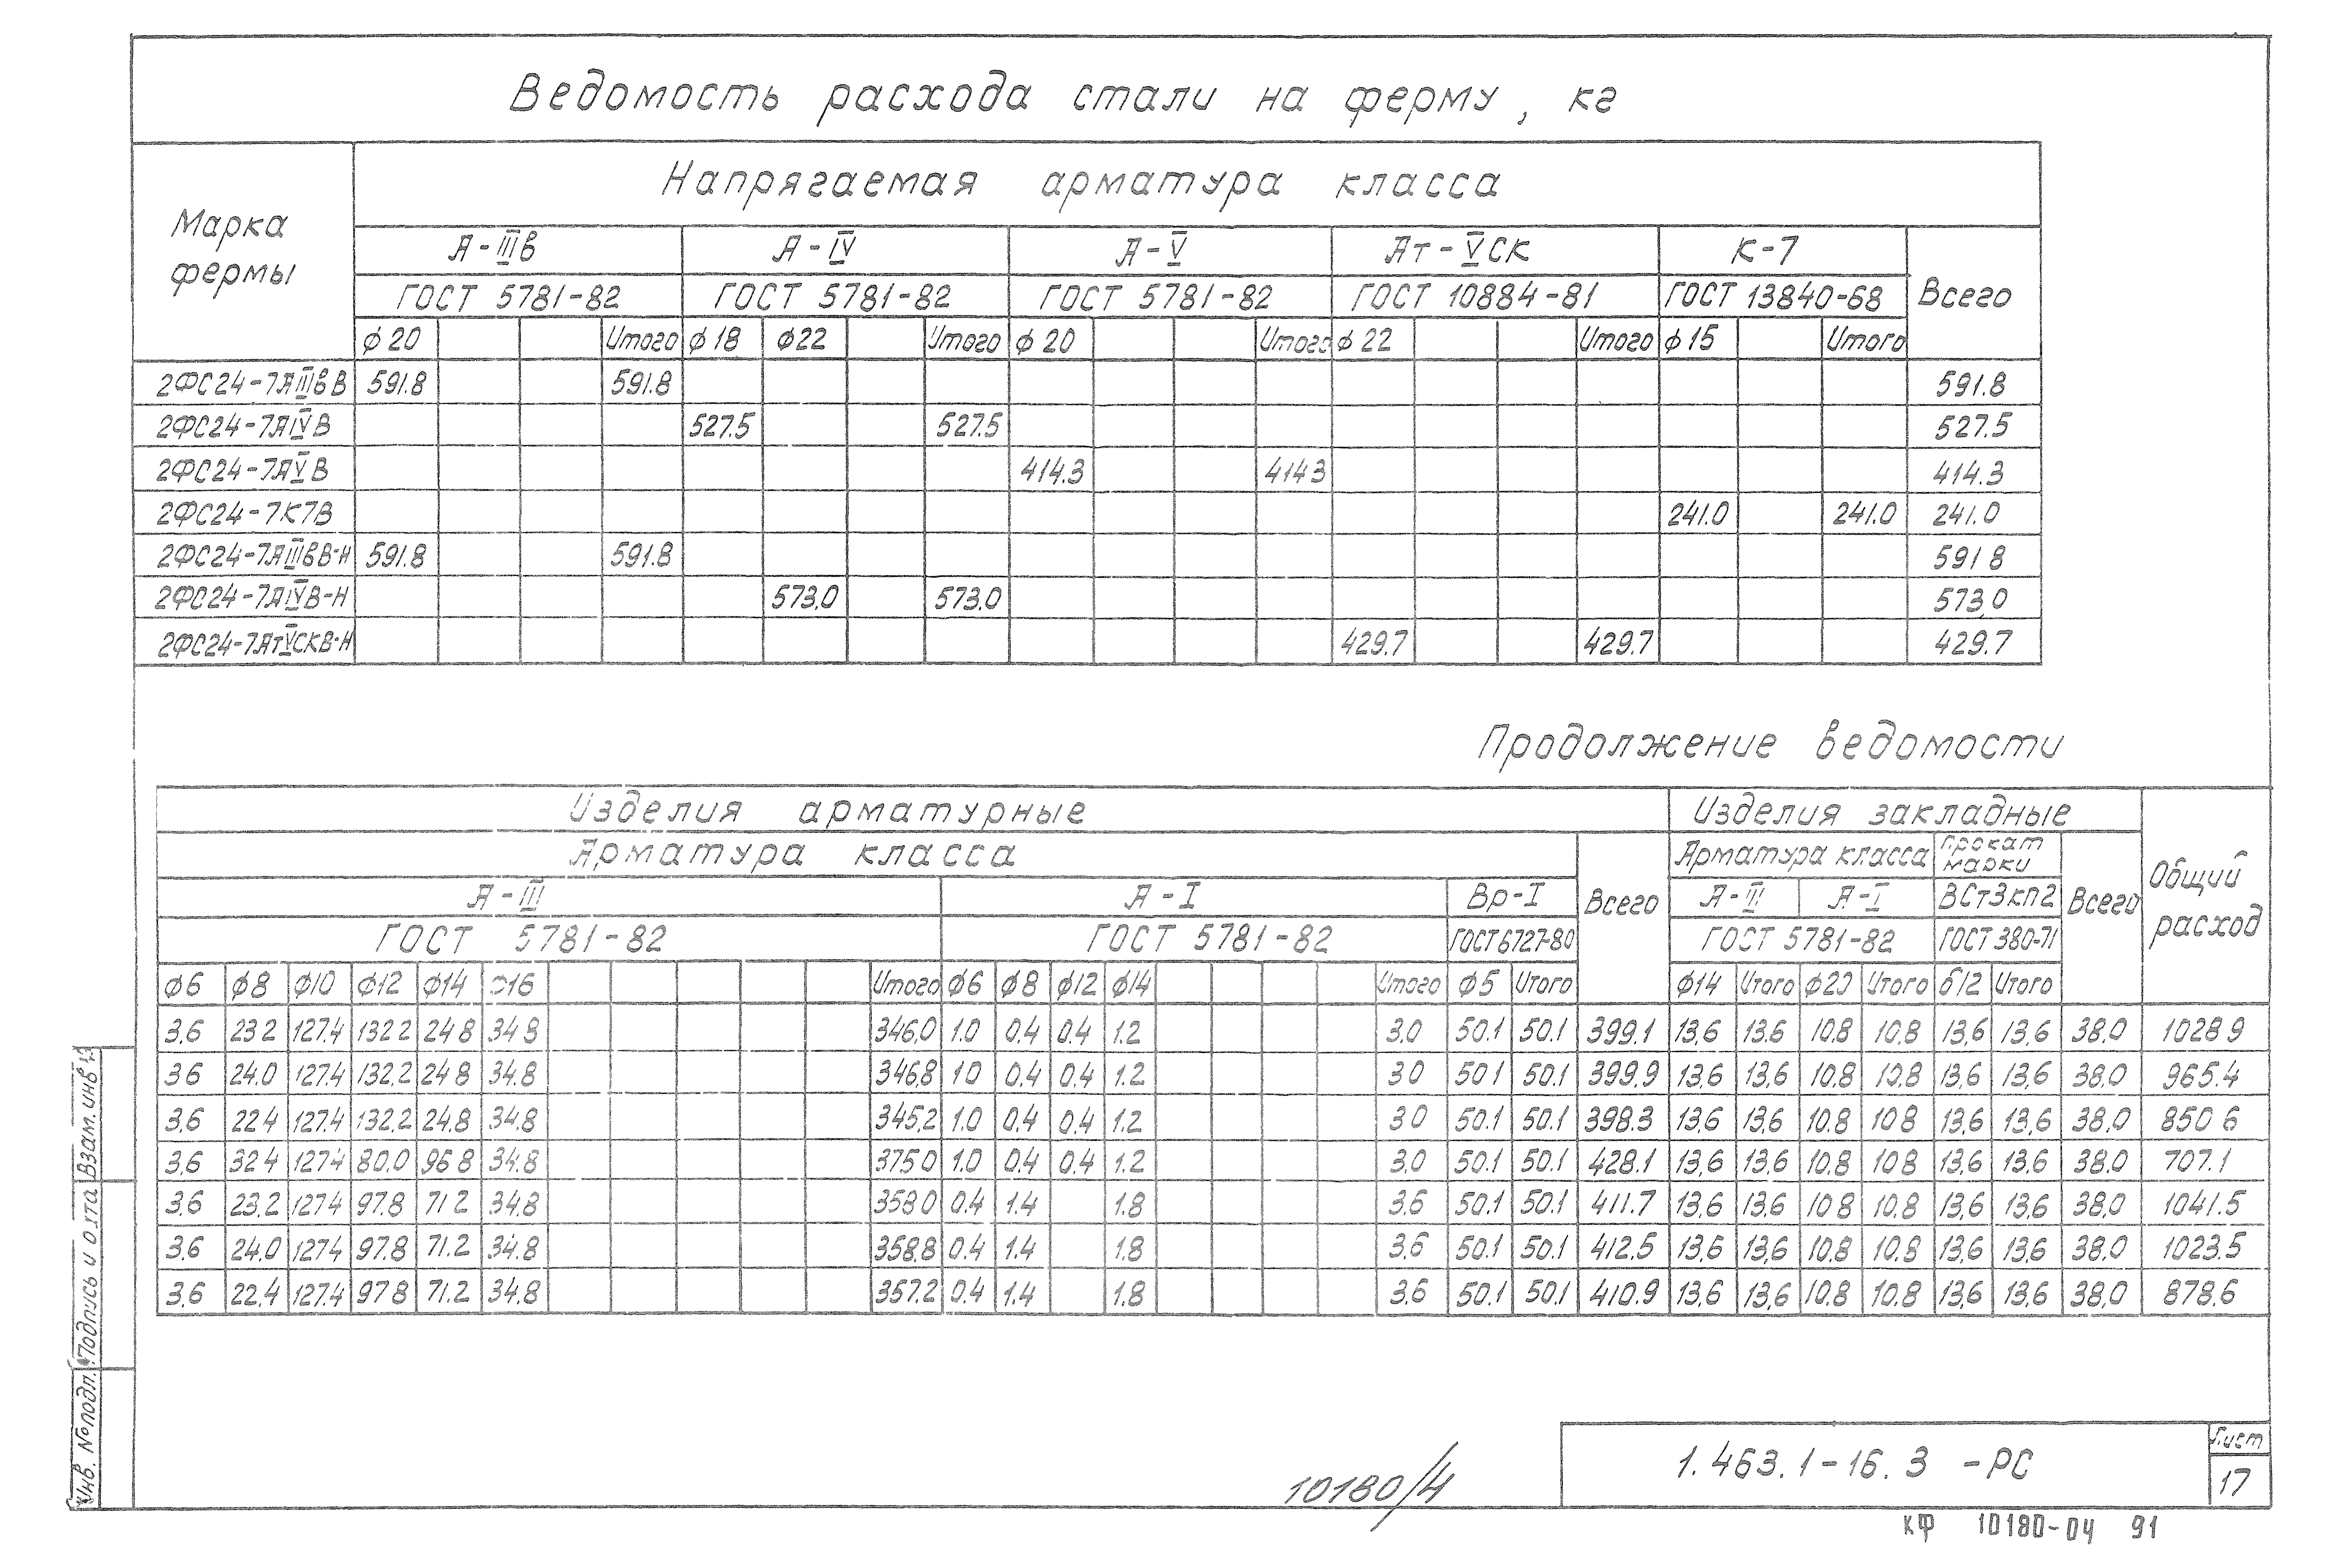 Ведомость расхода стали на ферму, кг
Марка фермы
Напрягаемая арматура класса
А-IIIв А-IV А-V Ат-VСК К-7 Всего
ГОСТ 5781-82 ГОСТ 5781-82 ГОСТ 5781-82 ГОСТ 10884-81 ГОСТ 13840-68
ф20 Итого ф18 ф22 Итого ф20 Итого ф22 Итого ф15 Итого
2ФС24-7АIIIвВ 591.8 591.8 591.8
2ФС24-7АIVВ 527.5 527.5 527.5
2ФС24-7АVВ 414.3 414.3 414.3
2ФС24-7К7В 241.0 241.0 241.0
2ФС24-7АIIIвВ-Н 591.8 591.8 591.8
2ФС24-7АIVВ-Н 573.0 573.0 573.0
2ФС24-7АтVСКВ-Н 429.7 429.7 429.7
Продолжение ведомости
Изделия арматурные Изделия закладные Общий расход
Арматура класса Всего Арматура класса Прокат марки Всего
А-III А-I Вр-I А-III А-I ВСт3кп2
ГОСТ 5781-82 ГОСТ 5781-82 ГОСТ 6727-80 ГОСТ 5781-82 ГОСТ 380-71
ф6 ф8 ф10 ф12 ф14 ф16 Итого ф6 ф8 ф12 ф14 Итого ф5 Итого ф14 Итого ф20 Итого δ12 Итого
3.6 23.2 127.4 132.2 24.8 34.8 346.0 1.0 0.4 0.4 1.2 3.0 50.1 50.1 399.1 13.6 13.6 10.8 10.8 13.6 13.6 38.0 1028.9
3.6 24.0 127.4 132.2 24.8 34.8 346.8 1.0 0.4 0.4 1.2 3.0 50.1 50.1 399.9 13.6 13.6 10.8 10.8 13.6 13.6 38.0 965.4
3.6 22.4 127.4 132.2 24.8 34.8 345.2 1.0 0.4 0.4 1.2 3.0 50.1 50.1 398.3 13.6 13.6 10.8 10.8 13.6 13.6 38.0 850.6
3.6 32.4 127.4 80.0 96.8 34.8 375.0 1.0 0.4 0.4 1.2 3.0 50.1 50.1 428.1 13.6 13.6 10.8 10.8 13.6 13.6 38.0 707.1
3.6 23.2 127.4 97.8 71.2 34.8 358.0 0.4 1.4 1.8 3.6 50.1 50.1 411.7 13.6 13.6 10.8 10.8 13.6 13.6 38.0 1041.5
3.6 24.0 127.4 97.8 71.2 34.8 358.8 0.4 1.4 1.8 3.6 50.1 50.1 412.5 13.6 13.6 10.8 10.8 13.6 13.6 38.0 1023.5
3.6 22.4 127.4 97.8 71.2 34.8 357.2 0.4 1.4 1.8 3.6 50.1 50.1 410.9 13.6 13.6 10.8 10.8 13.6 13.6 38.0 878.6
Инв. № подл. Подпись и дата Взам. инв №
10180/4
1.463.1-16.3 -РС
Лист
17
КФ 10180-04 91